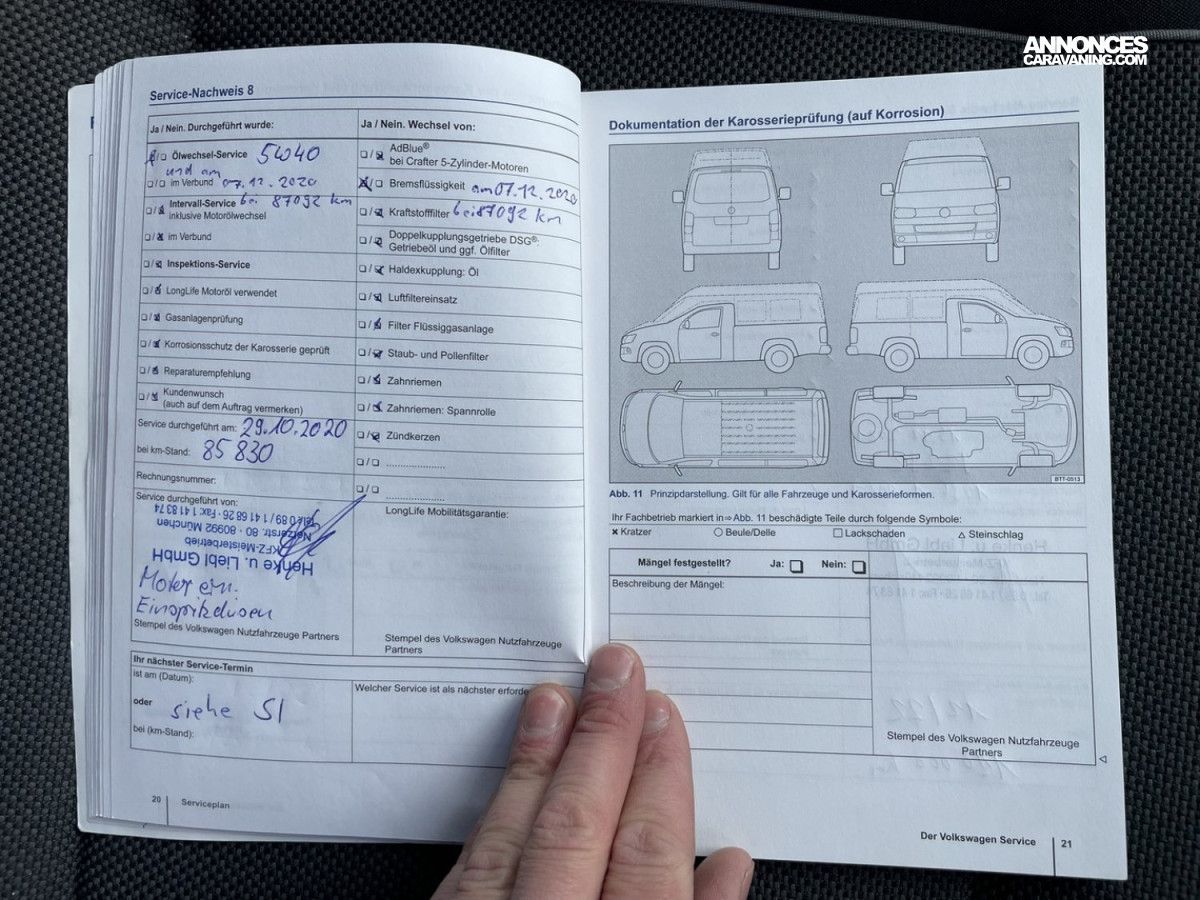 ANNONCES
CARAVANING.COM
Service-Nachweis 8
Ja / Nein. Durchgeführt wurde:
Ölwechsel-Service 5W40
und am
im Verbund 07.12.2020
Intervall-Service bei 87092 km
inklusive Motorölwechsel
im Verbund
Inspektions-Service
LongLife Motoröl verwendet
Gasanlagenprüfung
Korrosionsschutz der Karosserie geprüft
Reparaturempfehlung
Kundenwunsch
(auch auf dem Auftrag vermerken)
Service durchgeführt am: 29.10.2020
bei km-Stand: 85 830
Rechnungsnummer:
Service durchgeführt von:
Henke u. Liebl GmbH
KFZ-Meisterbetrieb
80 · 80992 München
089 / 1 41 68 26 · Fax: 1 41 83 74
Motor ern.
Einspritzdüsen
Stempel des Volkswagen Nutzfahrzeuge Partners
Ja / Nein. Wechsel von:
AdBlue®
bei Crafter 5-Zylinder-Motoren
Bremsflüssigkeit am 07.12.2020
Kraftstofffilter bei 87092 km
Doppelkupplungsgetriebe DSG®:
Getriebeöl und ggf. Ölfilter
Haldexkupplung: Öl
Luftfiltereinsatz
Filter Flüssiggasanlage
Staub- und Pollenfilter
Zahnriemen
Zahnriemen: Spannrolle
Zündkerzen
LongLife Mobilitätsgarantie:
Stempel des Volkswagen Nutzfahrzeuge
Partners
Ihr nächster Service-Termin
ist am (Datum):
oder siehe SI
bei (km-Stand):
Welcher Service ist als nächster erforde
20 Serviceplan
Dokumentation der Karosserieprüfung (auf Korrosion)
BTT-0513
Abb. 11 Prinzipdarstellung. Gilt für alle Fahrzeuge und Karosserieformen.
Ihr Fachbetrieb markiert in ⇒ Abb. 11 beschädigte Teile durch folgende Symbole:
× Kratzer ○ Beule/Delle □ Lackschaden △ Steinschlag
Mängel festgestellt? Ja: Nein:
Beschreibung der Mängel:
Stempel des Volkswagen Nutzfahrzeuge
Partners
Der Volkswagen Service 21